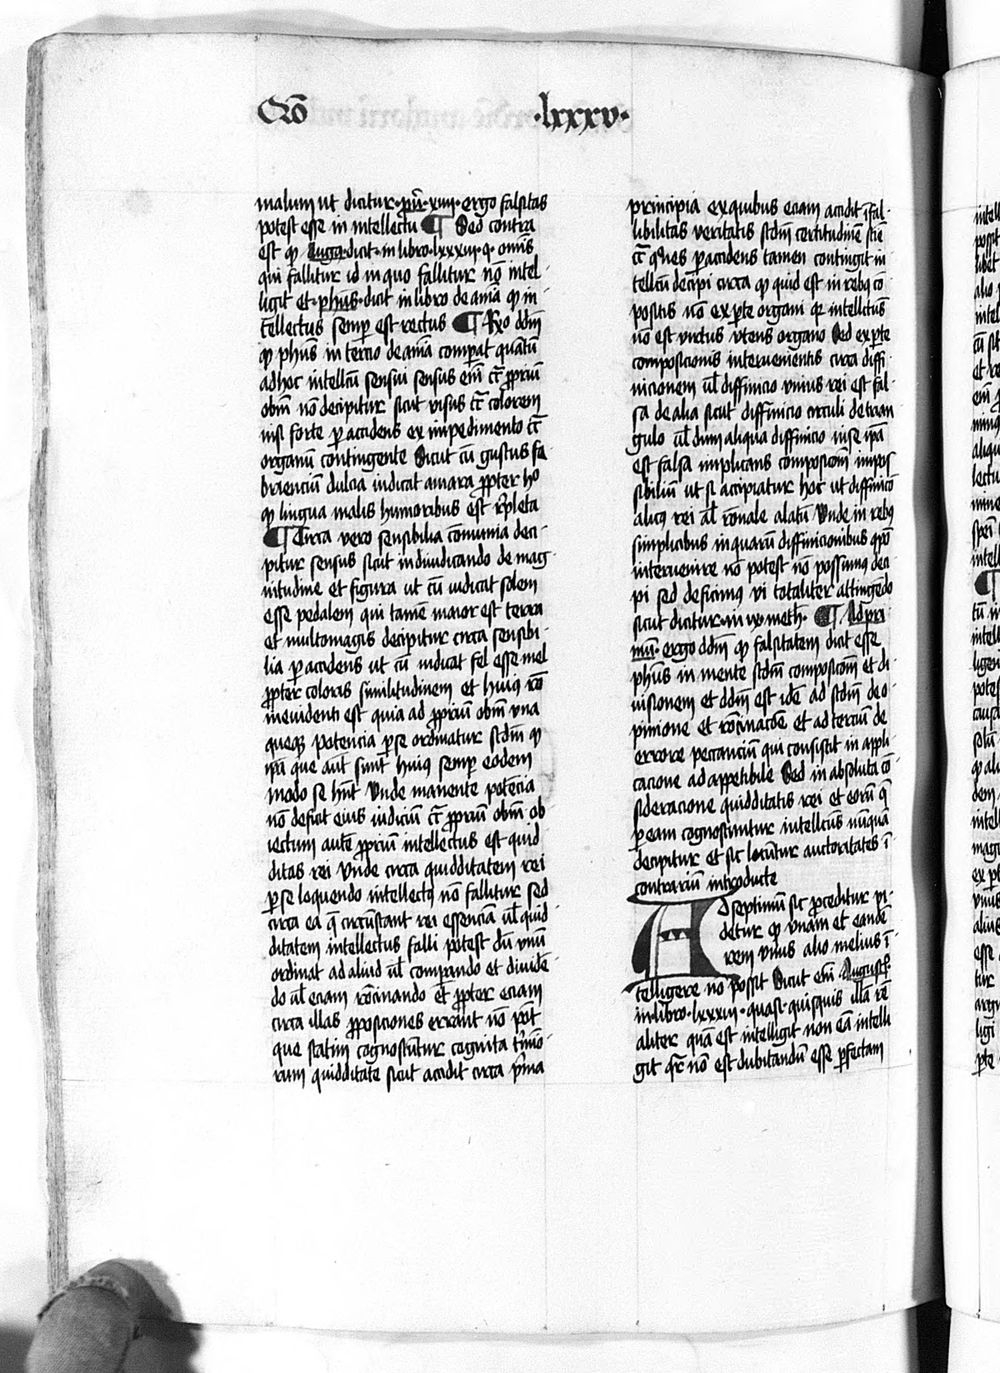 Qo ·lxxxv·
malum ut dicitur·pũ·xiiii·ergo falsitas
potest esse in intellectu ¶ Sed contra
est qͫ Auga·dicit·in libro·lxxxiii·q· omnis
qui fallitur id in quo fallitur nõ intel
ligit et·phũs·dicit in libro de aña qͫ in
tellectus semper est rectus ¶ Rño ddm̃
qͫ phũs in tercio de aña comparat quãtũ
ad hoc intellectũ sensui sensus em̃ ctr̃a propriũ
obm̃ nõ decipitur sicut visus ctr̃a colorem
nisi forte per accidens ex impedimento ctr̃a
organũ contingente Sicut cũ gustus fe
briencium dulcia iudicat amara propter hoͨ
qͫ lingua malis humoribus est repleta
¶ Circa vero sensibilia cõmunia deci
pitur sensus sicut in diiudicando de mag
nitudine et figura ut cũ iudicat solem
esse pedalem qui tamẽ maior est terra
et multomagis decipitur circa sensibi
lia per accidens ut cũ iudicat fel esse mel
propter coloris similitudinem et huiꝰ rõ
in evidenti est quia ad propriũ obm̃ vna
queqꝫ potencia per se ordinatur scdm̃ qͫ
ipa que aut̃ sunt huiꝰ semper eodem
modo se hñt Unde manente potẽcia
nõ deficit eius iudiciũ ctr̃a propriũ obm̃ ob
iectum autẽ propriũ intellectus est quid
ditas rei Unde circa quidditatem rei
per se loquendo intellectꝰ nõ fallitur sed
circa ea q̃ circũstant rei essencia ul̃ quid
ditatem intellectus falli potest dũ vnũ
ordinat ad aliud ul̃ componẽdo et diuidẽ
do ul̃ eciam rõcinando et propter eciam
circa illas proposiciones errare nõ pot̃
que statim cognoscũtur cognita t̃mino
rum quidditate sicut accidit circa prima
principia ex quibus eciam accidit ĩfal
libilitas veritatis scdm̃ certitudinẽ sciẽ
ctr̃a qͨlnes per accidens tamen contingit in
tellectũ decipi circa qͫ quid est in rebꝰ cõ
positis nõ ex parte organi qr̃ intellectus
nõ est virtus vtens organo Sed ex parte
composicionis intervenientis circa diffi
nicionem ul̃ diffinicio vnius rei est fal
sa de alia sicut diffinicio circuli de trian
gulo ul̃ dum aliqua diffinicio in se ipa
est falsa implicans composicõm impos
sibilium ut si accipiatur hoc ut diffinicõ
alicꝰ rei aĩal rõnale alatũ Unde in rebꝰ
simplicibus in quarũ diffinicionibus cõpõ
intervenire nõ potest nõ possumꝰ deci
pi sed deficimꝰ in totaliter attingẽdo
sicut dicitur·in ix meth̃· ¶ Ad pri
mũ· ergo ddm̃ qͫ falsitatem dicit esse
phũs in mente scdm̃ composicõm et di
uisionem et ddm̃ est idẽ ad scdm̃ de o
pinione et rõcinacõe et ad terciũ de
errore peccancium qui consistit in appli
cacione ad appetibile Sed in absoluta cõ
sideracione quidditatis rei et eorũ q̃
per eam cognoscuntur intellectus nũquã
decipitur et sic locũtur auctoritates ĩ
contrarium introducte
Ad septimũ sic proceditur vi
detur qͫ vnam et eandẽ
rem vnus alio melius ĩ
telligere nõ possit Sicut em̃ Augusti
in libro·lxxxiii·quast·quisquis illã rẽ
aliter quã est intelligit non eã intelli
git qr̃ nõ est dubitandũ esse perfectam